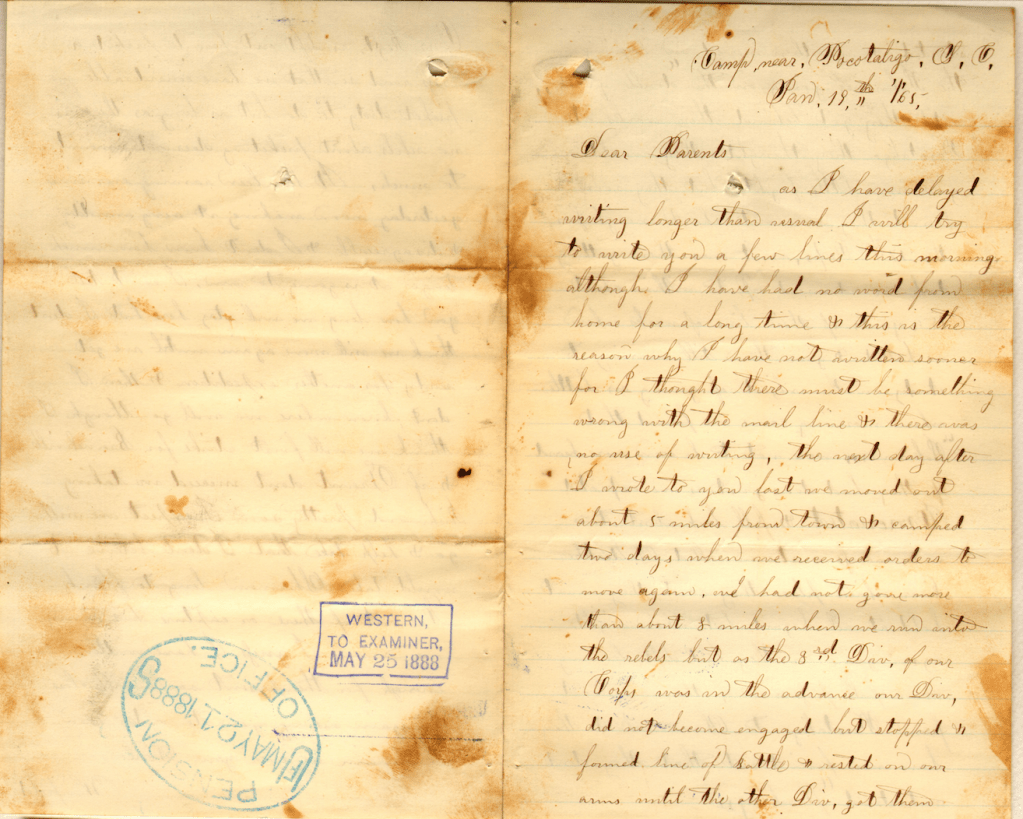 WESTERN,
TO EXAMINER,
MAY 25 1888
U.S.
PENSION
MAY 21 1888
OFFICE.
Camp, near, Pocotaligo, S, C,
Jan, 19,th "/65,
Dear Parents
as I have delayed
writing longer than usual I will try
to write you a few lines this morning
although I have had no word from
home for a long time & this is the
reason why I have not written sooner
for I thought there must be something
wrong with the mail line & there was
no use of writing, the next day after
I wrote to you last we moved out
about 5 miles from town & camped
two days when we received orders to
move again, we had not gone more
than about 8 miles when we run into
the rebels but as the 3rd Div, of our
Corps was in the advance our Div,
did not become engaged but stopped &
formed line of battle & rested on our
arms until the other Div, got them